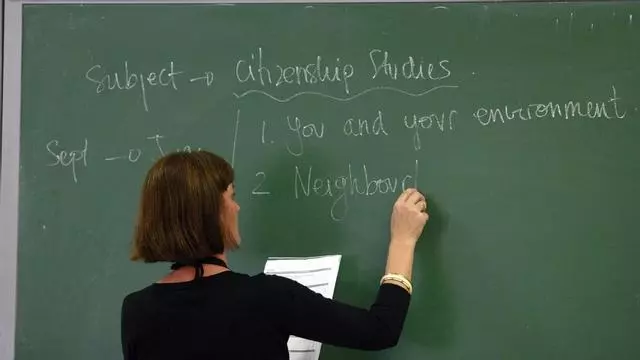 Subject → Citizenship Studies.
1. You and your environment.
Sept →
2 Neighbour